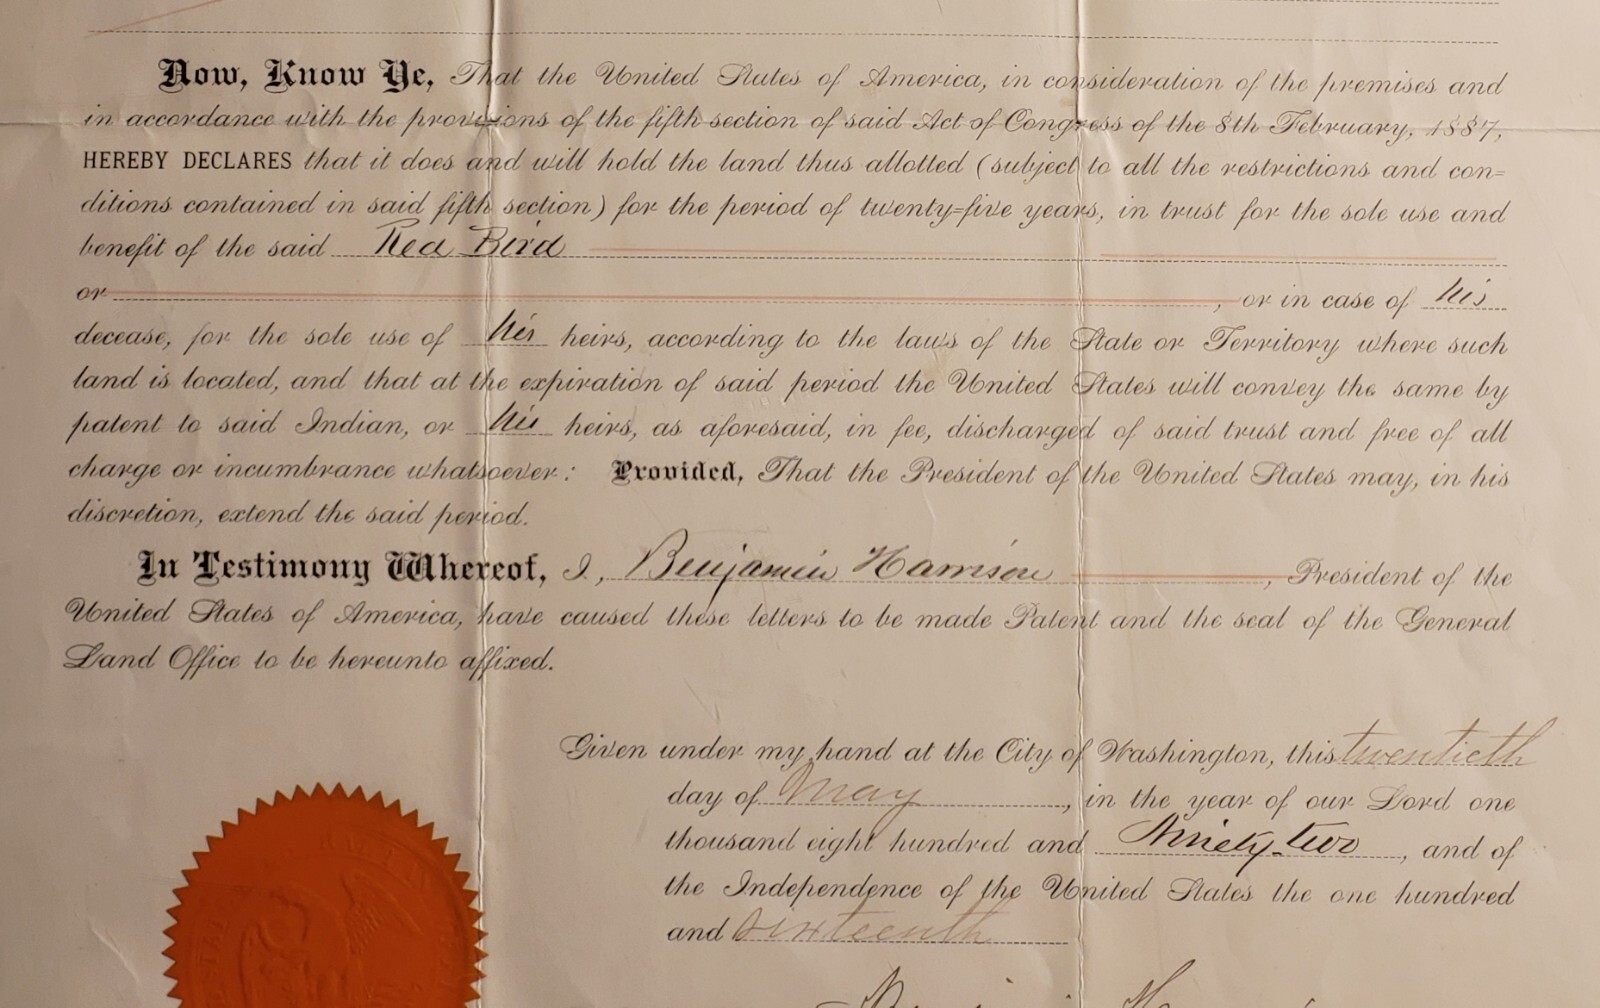 Now, Know Ye, That the United States of America, in consideration of the premises and
in accordance with the provisions of the fifth section of said Act of Congress of the 8th February, 1887,
HEREBY DECLARES that it does and will hold the land thus allotted (subject to all the restrictions and con=
ditions contained in said fifth section) for the period of twenty=five years, in trust for the sole use and
benefit of the said Red Bird
or , or in case of his
decease, for the sole use of his heirs, according to the laws of the State or Territory where such
land is located, and that at the expiration of said period the United States will convey the same by
patent to said Indian, or his heirs, as aforesaid, in fee, discharged of said trust and free of all
charge or incumbrance whatsoever: Provided, That the President of the United States may, in his
discretion, extend the said period.
In Testimony Whereof, I, Benjamin Harrison , President of the
United States of America, have caused these letters to be made Patent and the seal of the General
Land Office to be hereunto affixed.
Given under my hand at the City of Washington, this twentieth
day of May , in the year of our Lord one
thousand eight hundred and Ninety-two , and of
the Independence of the United States the one hundred
and sixteenth